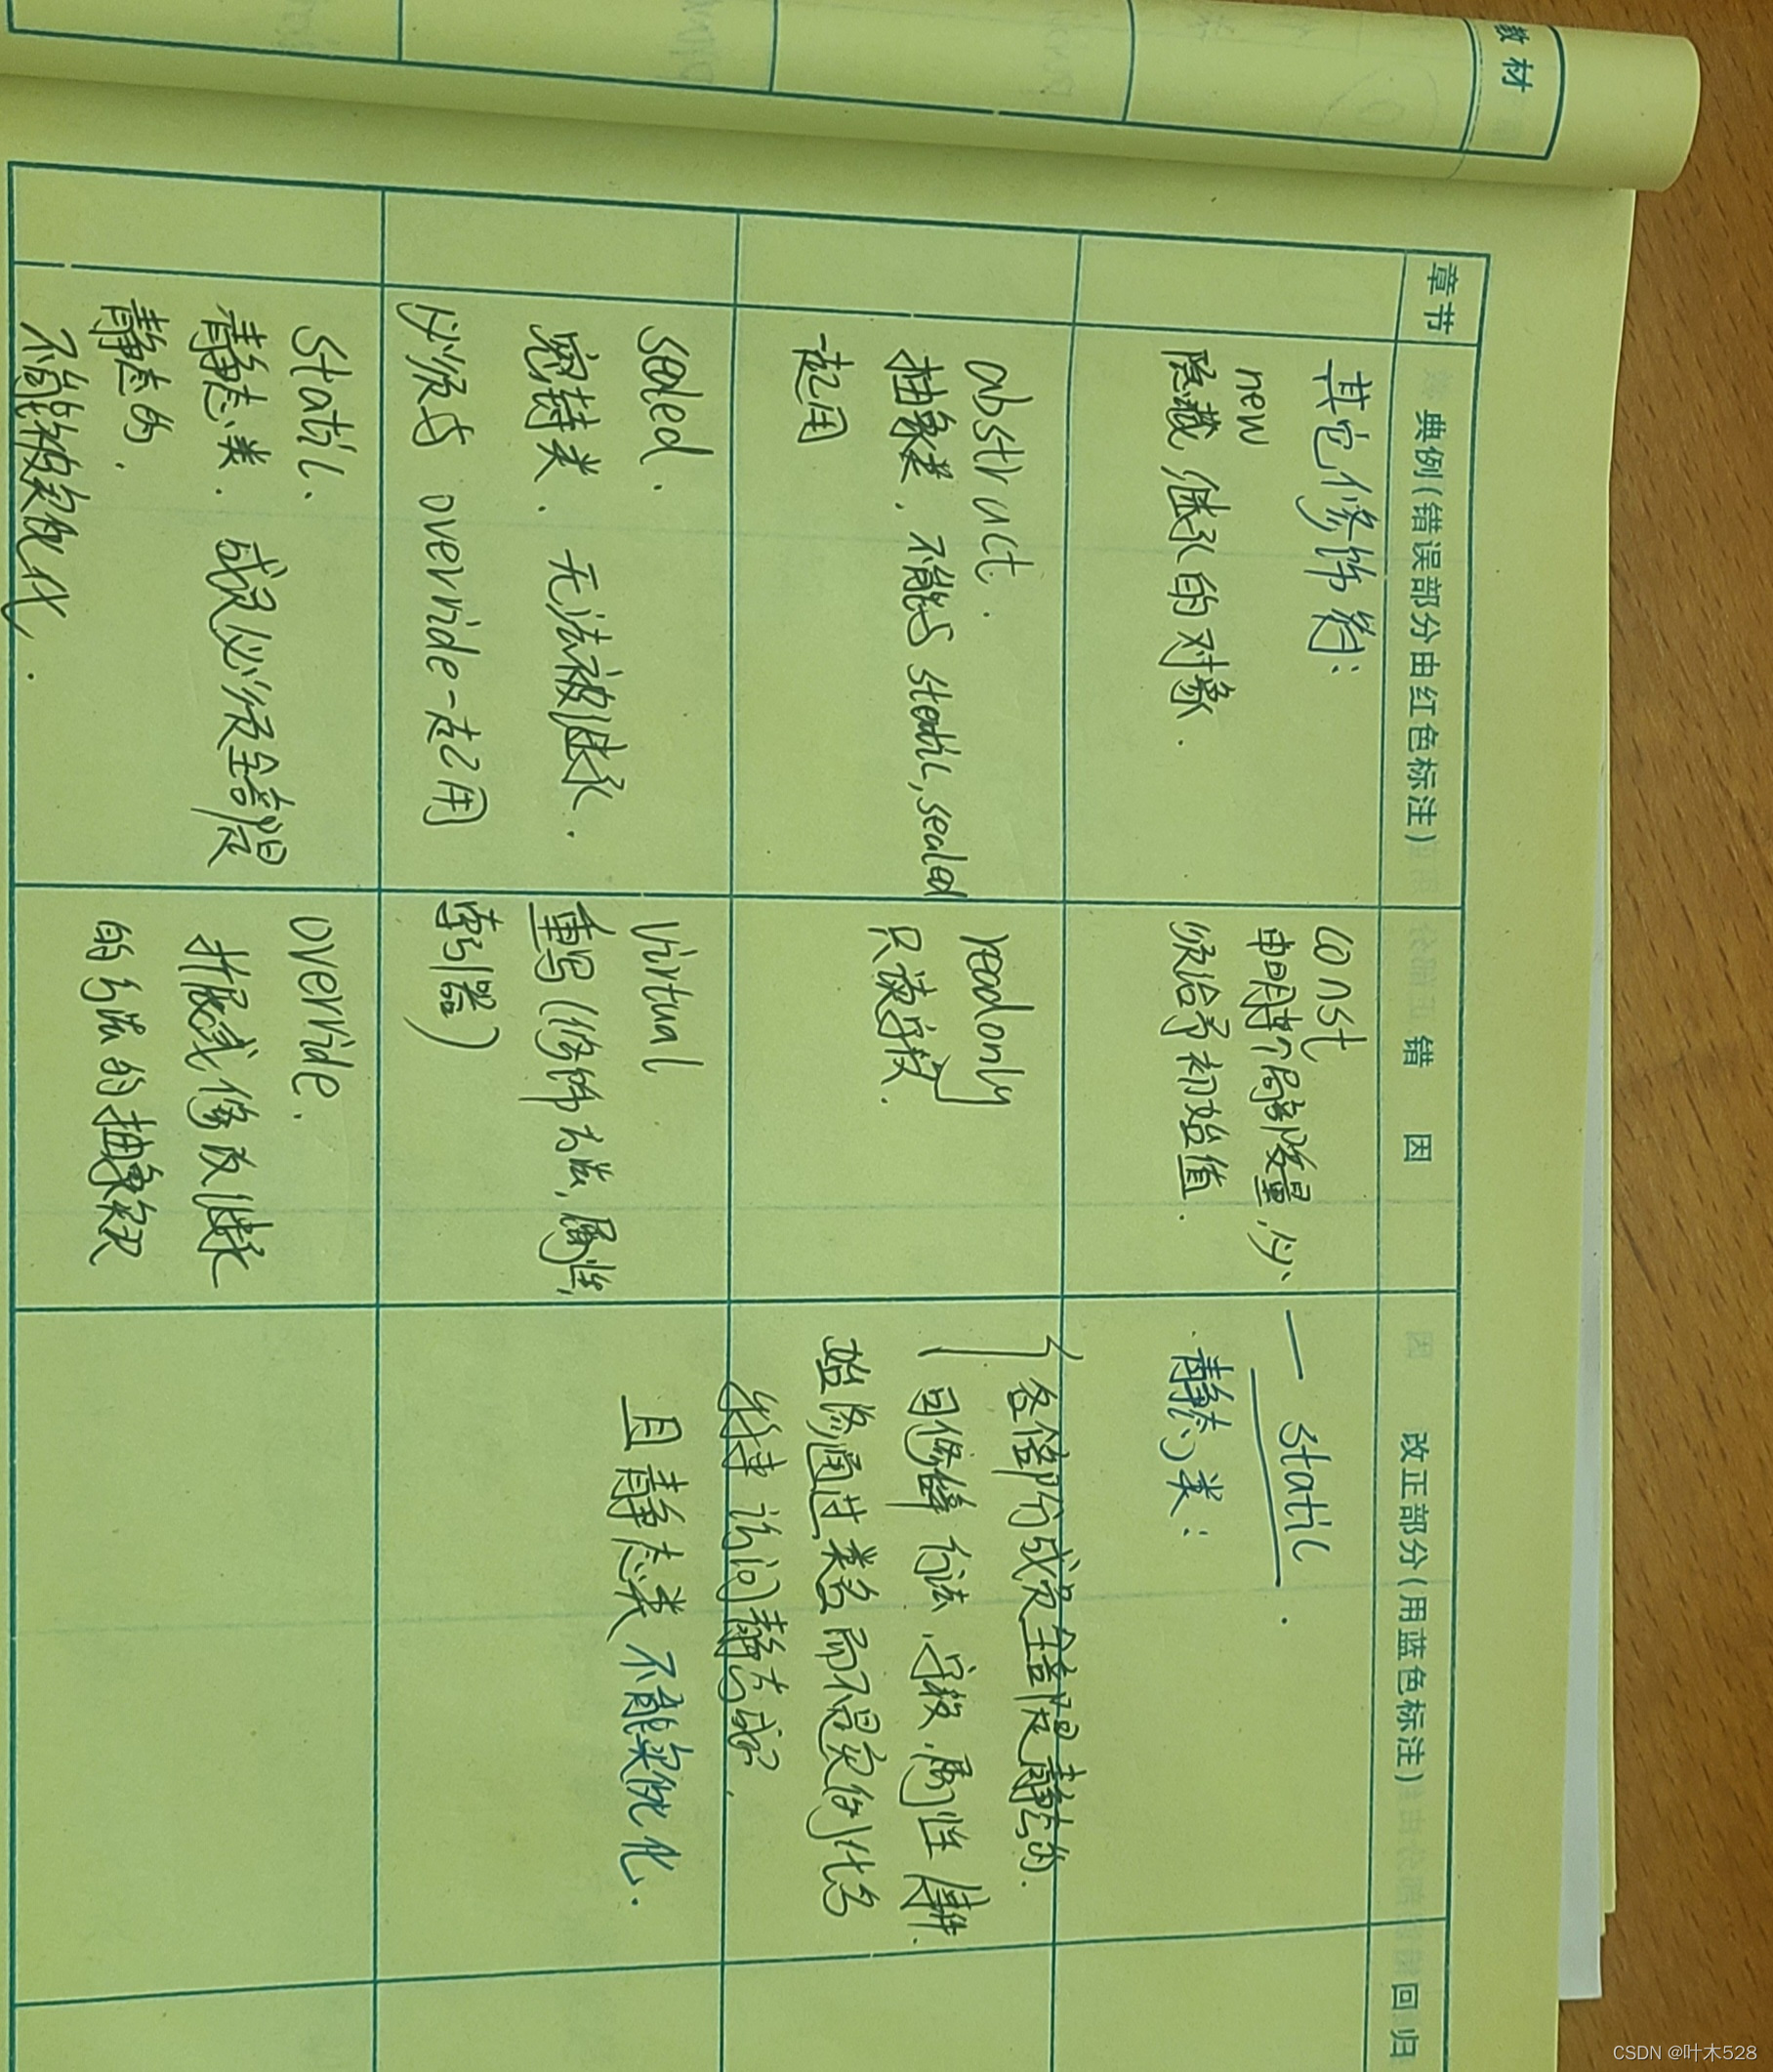 教材
章节
典例(错误部分由红色标注)
错 因
改正部分(用蓝色标注)
回归
其它修饰符:
new
隐藏,继承的对象.
const
申明某个局部变量,必
须给予初始值.
— static.
静态类:
abstract.
抽象类,不能与static,sealed
一起用
readonly
只读字段.
各部份成员全部是静态的.
可修饰方法、字段、属性、事件.
始终通过类名而不是实例化名
称来访问静态成员.
sealed.
密封类.无法被继承.
必须与override一起用
virtual
重写(修饰方法,属性,
索引器)
且静态类不能实例化.
static.
静态类.成员必须全部是
静态的.
不能被实例化.
override.
扩展或修改继承
的方法的抽象
CSDN @叶木528